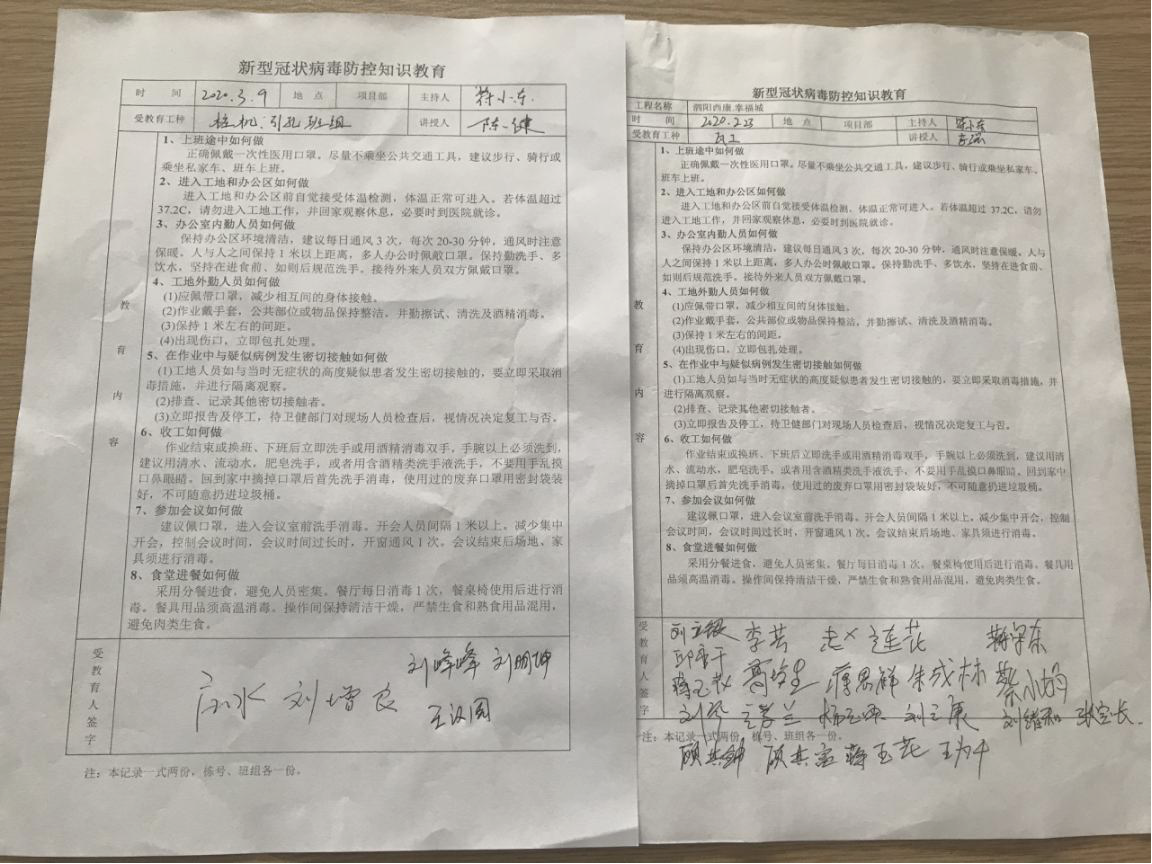 新型冠状病毒防控知识教育
时 间 2020.3.9 地 点 项目部 主持人
受教育工种 桩机、引孔班组 讲授人 陈健
教育内容
1、上班途中如何做
正确佩戴一次性医用口罩。尽量不乘坐公共交通工具，建议步行、骑行或
乘坐私家车、班车上班。
2、进入工地和办公区如何做
进入工地和办公区前自觉接受体温检测，体温正常可进入。若体温超过
37.2C，请勿进入工地工作，并回家观察休息，必要时到医院就诊。
3、办公室内勤人员如何做
保持办公区环境清洁，建议每日通风 3 次，每次 20-30 分钟，通风时注意
保暖。人与人之间保持 1 米以上距离，多人办公时佩戴口罩。保持勤洗手、多
饮水，坚持在进食前、如则后规范洗手。接待外来人员双方佩戴口罩。
4、工地外勤人员如何做
(1)应佩带口罩，减少相互间的身体接触。
(2)作业戴手套，公共部位或物品保持整洁，并勤擦试、清洗及酒精消毒。
(3)保持 1 米左右的间距。
(4)出现伤口，立即包扎处理。
5、在作业中与疑似病例发生密切接触如何做
(1)工地人员如与当时无症状的高度疑似患者发生密切接触的，要立即采取消
毒措施，并进行隔离观察。
(2)排查、记录其他密切接触者。
(3)立即报告及停工，待卫健部门对现场人员检查后，视情况决定复工与否。
6、收工如何做
作业结束或换班、下班后立即洗手或用酒精消毒双手，手腕以上必须洗到，
建议用清水、流动水，肥皂洗手，或者用含酒精类洗手液洗手，不要用手乱摸
口鼻眼睛。回到家中摘掉口罩后首先洗手消毒，使用过的废弃口罩用密封袋装
好，不可随意扔进垃圾桶。
7、参加会议如何做
建议佩口罩，进入会议室前洗手消毒。开会人员间隔 1 米以上。减少集中
开会，控制会议时间，会议时间过长时，开窗通风 1 次。会议结束后场地、家
具须进行消毒。
8、食堂进餐如何做
采用分餐进食，避免人员密集。餐厅每日消毒 1 次，餐桌椅使用后进行消
毒。餐具用品须高温消毒。操作间保持清洁干燥，严禁生食和熟食用品混用，
避免肉类生食。
受教育人签字
刘峰峰 刘明坤
刘增良
注：本记录一式两份，栋号、班组各一份。
新型冠状病毒防控知识教育
工程名称 泗阳西康.幸福城
时 间 2020.2.23 地 点 项目部 主持人
受教育工种 瓦工 讲授人
教育内容
1、上班途中如何做
正确佩戴一次性医用口罩。尽量不乘坐公共交通工具，建议步行、骑行或乘坐私家车、
班车上班。
2、进入工地和办公区如何做
进入工地和办公区前自觉接受体温检测，体温正常可进入。若体温超过 37.2C，请勿
进入工地工作，并回家观察休息，必要时到医院就诊。
3、办公室内勤人员如何做
保持办公区环境清洁，建议每日通风 3 次，每次 20-30 分钟，通风时注意保暖。人与
人之间保持 1 米以上距离，多人办公时佩戴口罩。保持勤洗手、多饮水，坚持在进食前、
如则后规范洗手。接待外来人员双方佩戴口罩。
4、工地外勤人员如何做
(1)应佩带口罩，减少相互间的身体接触。
(2)作业戴手套，公共部位或物品保持整洁，并勤擦试、清洗及酒精消毒。
(3)保持 1 米左右的间距。
(4)出现伤口，立即包扎处理。
5、在作业中与疑似病例发生密切接触如何做
(1)工地人员如与当时无症状的高度疑似患者发生密切接触的，要立即采取消毒措施，并
进行隔离观察。
(2)排查、记录其他密切接触者。
(3)立即报告及停工，待卫健部门对现场人员检查后，视情况决定复工与否。
6、收工如何做
作业结束或换班、下班后立即洗手或用酒精消毒双手，手腕以上必须洗到，建议用清
水、流动水，肥皂洗手，或者用含酒精类洗手液洗手，不要用手乱摸口鼻眼睛。回到家中
摘掉口罩后首先洗手消毒，使用过的废弃口罩用密封袋装好，不可随意扔进垃圾桶。
7、参加会议如何做
建议佩口罩，进入会议室前洗手消毒。开会人员间隔 1 米以上。减少集中开会，控制
会议时间，会议时间过长时，开窗通风 1 次。会议结束后场地、家具须进行消毒。
8、食堂进餐如何做
采用分餐进食，避免人员密集。餐厅每日消毒 1 次，餐桌椅使用后进行消毒。餐具用
品须高温消毒。操作间保持清洁干燥，严禁生食和熟食用品混用，避免肉类生食。
受教育人签字
李芸
朱成林
刘立康
注：本记录一式两份，栋号、班组各一份。
蒋玉花